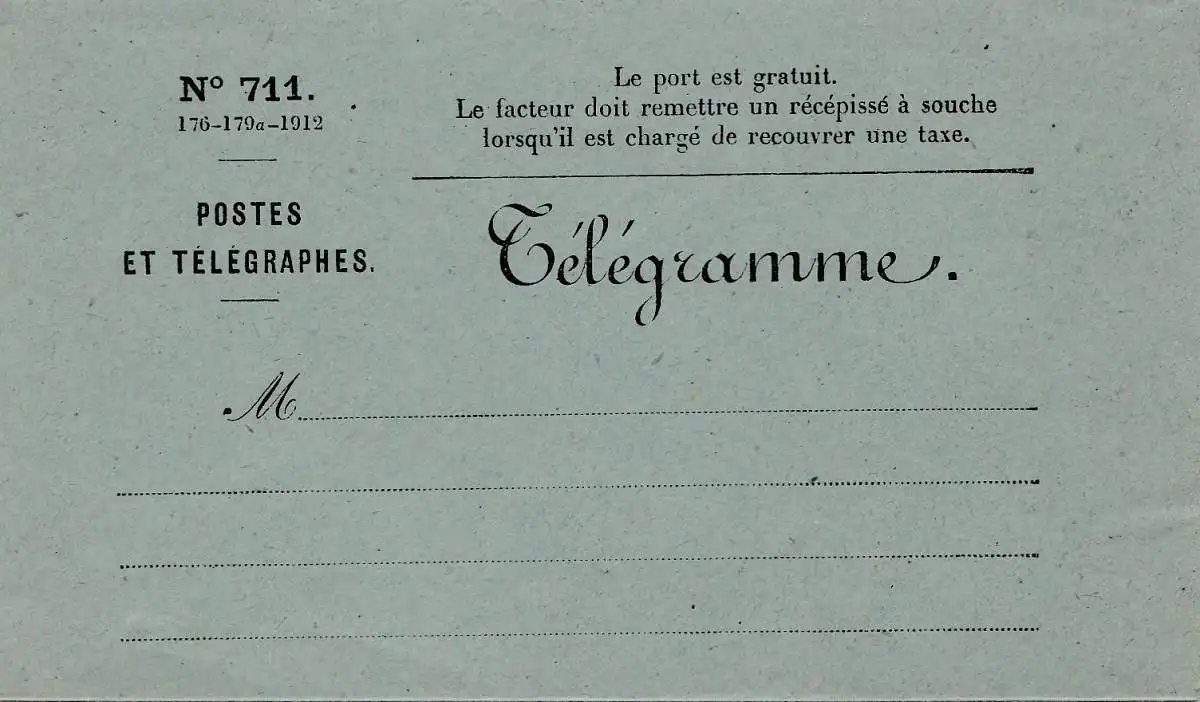 N° 711.
176-179a-1912
POSTES
ET TÉLÉGRAPHES.
Le port est gratuit.
Le facteur doit remettre un récépissé à souche
lorsqu'il est chargé de recouvrer une taxe.
Télégramme.
M